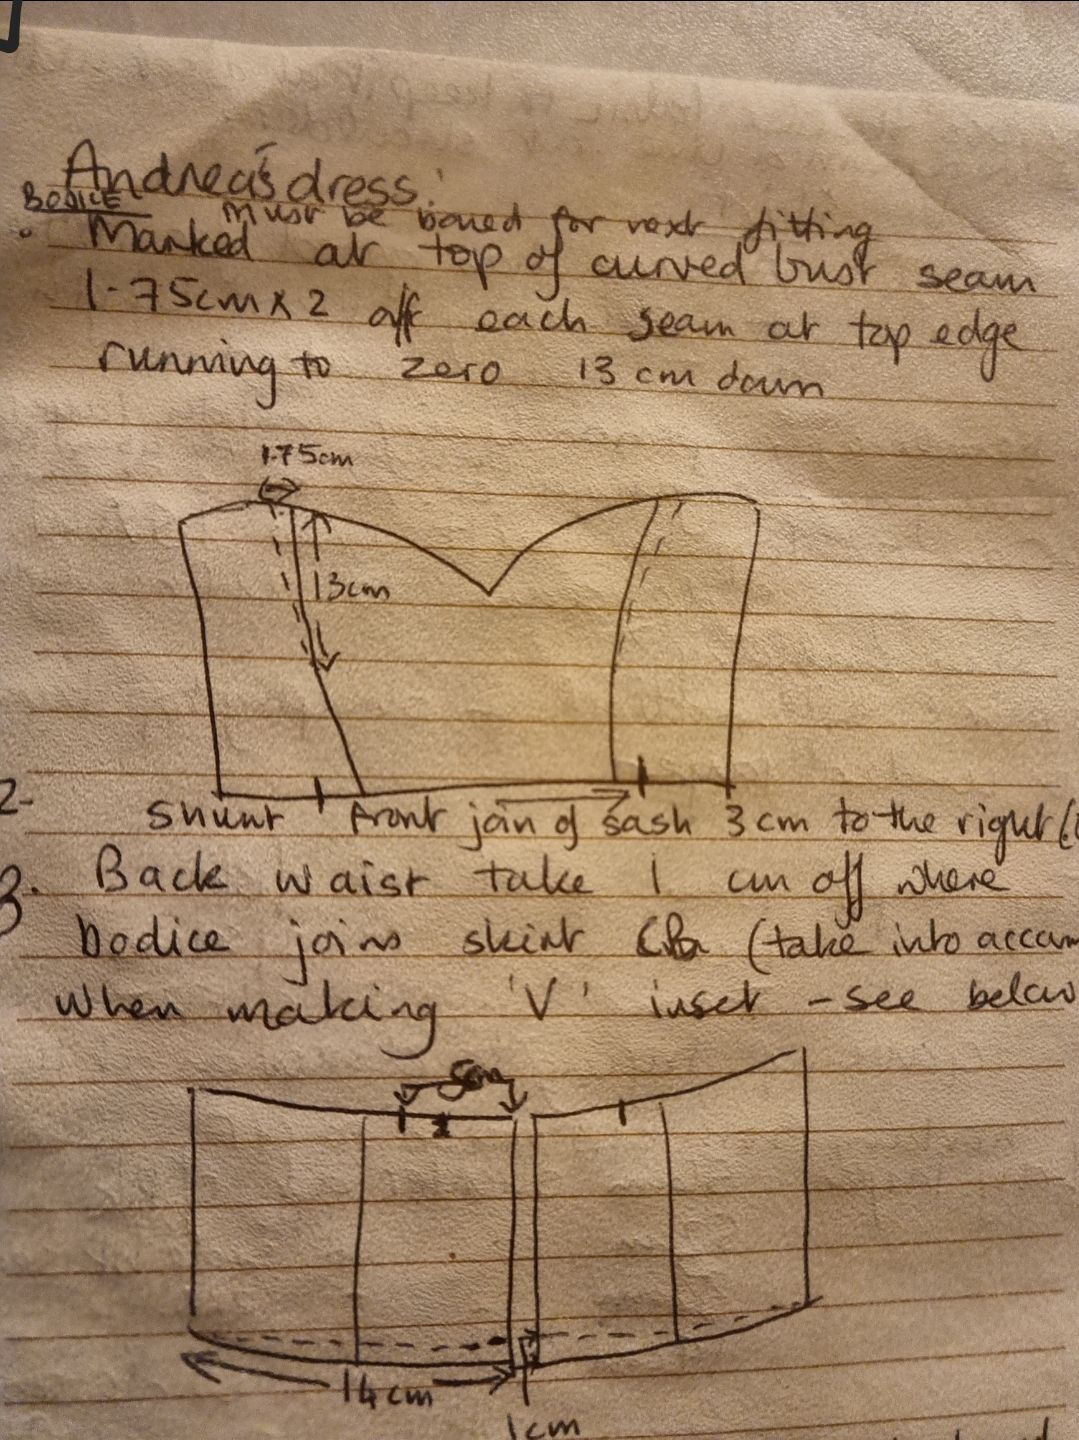 Andrea's dress:
BODICE
Must be boned for next fitting
Marked at top of curved bust seam
1.75cm x 2 off each seam at top edge
running to zero 13 cm down
1.75cm
13cm
2-
shunt front join of sash 3cm to the right (
3. Back waist take 1 cm off where
bodice joins skirt CB (take into
when making 'V' inset - see below
5cm
14cm
1cm